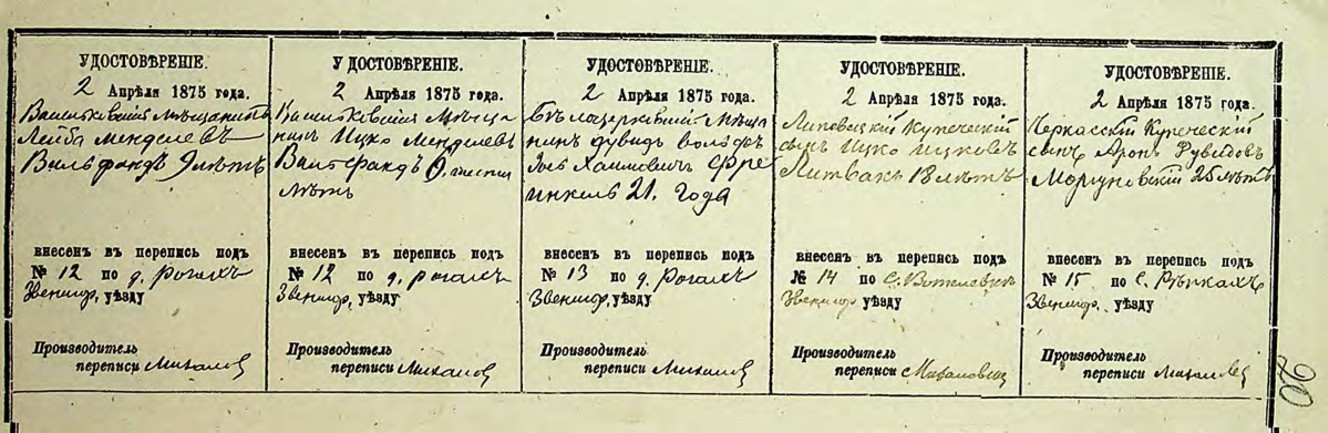 УДОСТОВѢРЕНІЕ.
2 Апрѣля 1875 года.
Васильковскій мѣщанинъ
Лейба Менделевъ
Вильфандъ 9 лѣтъ
внесенъ въ перепись подъ
№ 12 по д. Рогахъ
Звениг, уѣзду
Производитель
переписи
УДОСТОВѢРЕНІЕ.
2 Апрѣля 1875 года.
Васильковскій Мѣща
нинъ Ицко Менделевъ
Вильфандъ 6. шести
лѣтъ
внесенъ въ перепись подъ
№ 12 по д. Рогахъ
Звениг, уѣзду
Производитель
переписи
УДОСТОВѢРЕНІЕ.
2 Апрѣля 1875 года.
Бѣлоцерковскій мѣща
нинъ Дувидъ Вольфъ
Хаимовичъ Фре
нкель 21. Года
внесенъ въ перепись подъ
№ 13 по д. Рогахъ
Звениг, уѣзду
Производитель
переписи
УДОСТОВѢРЕНІЕ.
2 Апрѣля 1875 года.
Липовецкій Купеческій
сынъ Ицко Ицковъ
Литвакъ 18 лѣтъ
внесенъ въ перепись подъ
№ 14 по С.
Звениг уѣзду
Производитель
переписи
УДОСТОВѢРЕНІЕ.
2 Апрѣля 1875 года.
Черкасскій Купеческій
сынъ Аронъ Дувидовъ
Моргуновскій 25 лѣтъ
внесенъ въ перепись подъ
№ 15 по С. Рыжахъ
Звениг, уѣзду
Производитель
переписи